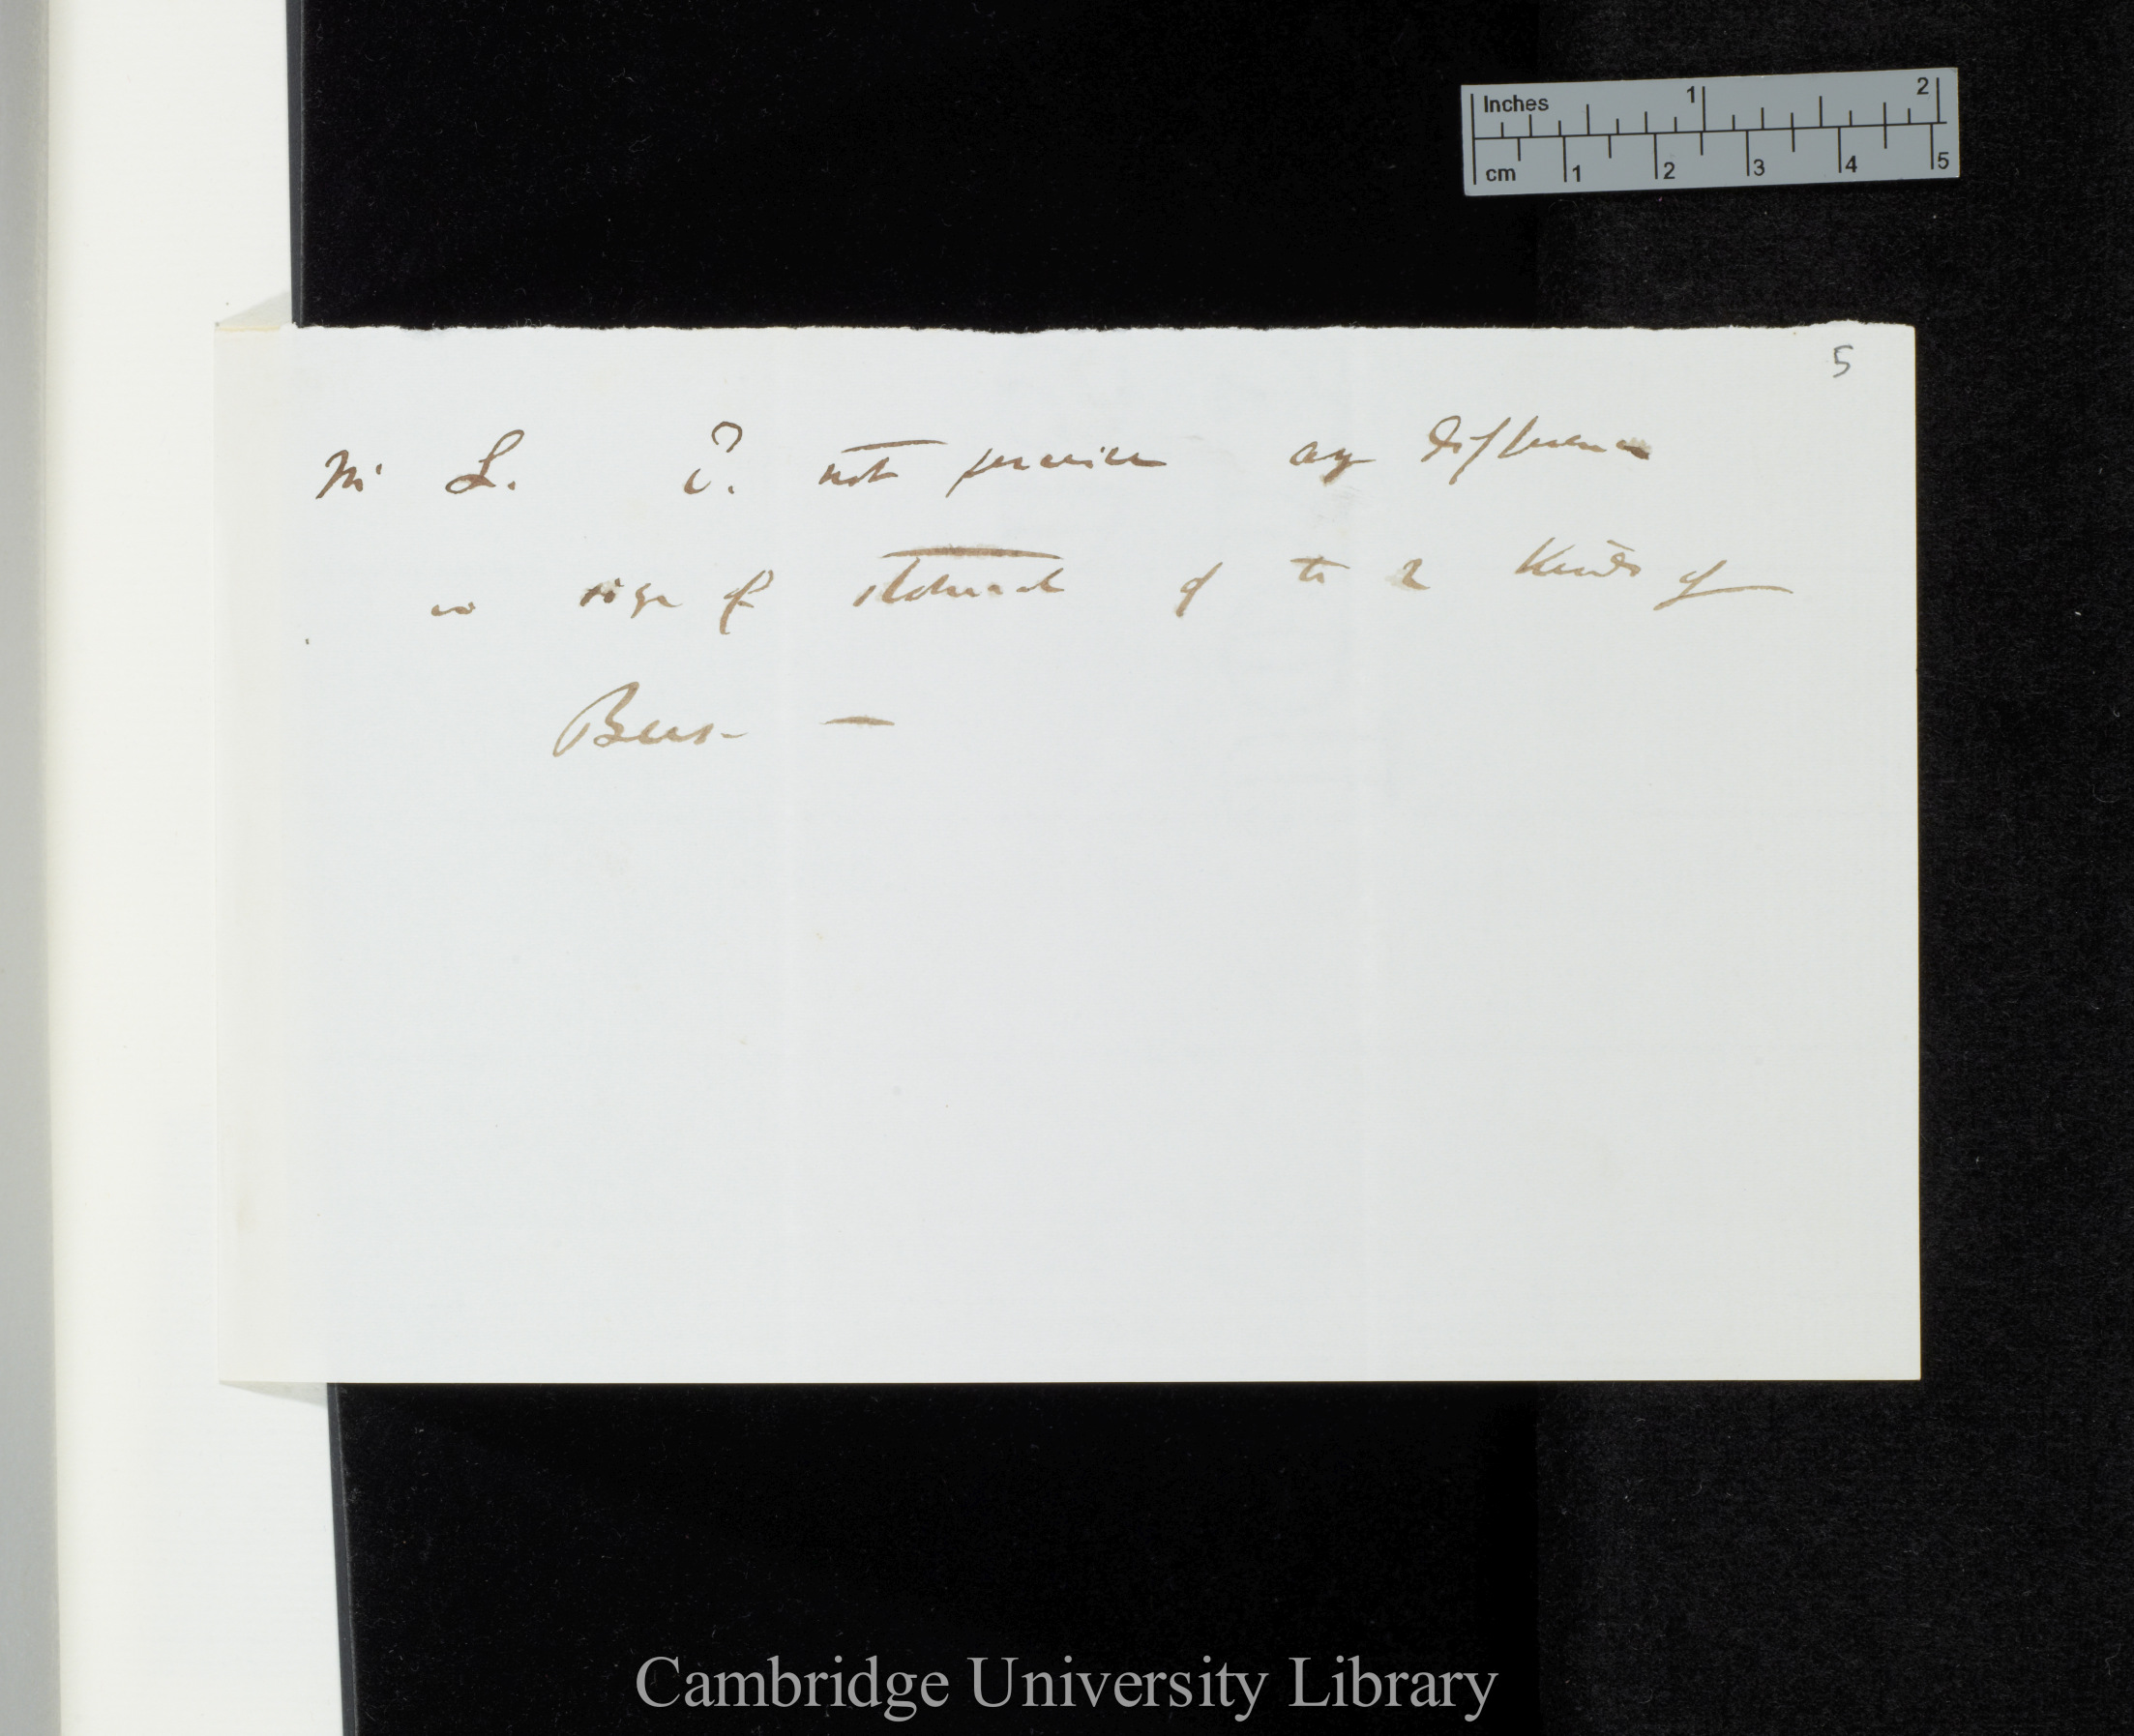 Inches 1 2
cm 1 2 3 4 5
5
Mr L. c. not perceive any difference
in size of stomach of the 2 kinds of
Bees —
Cambridge University Library